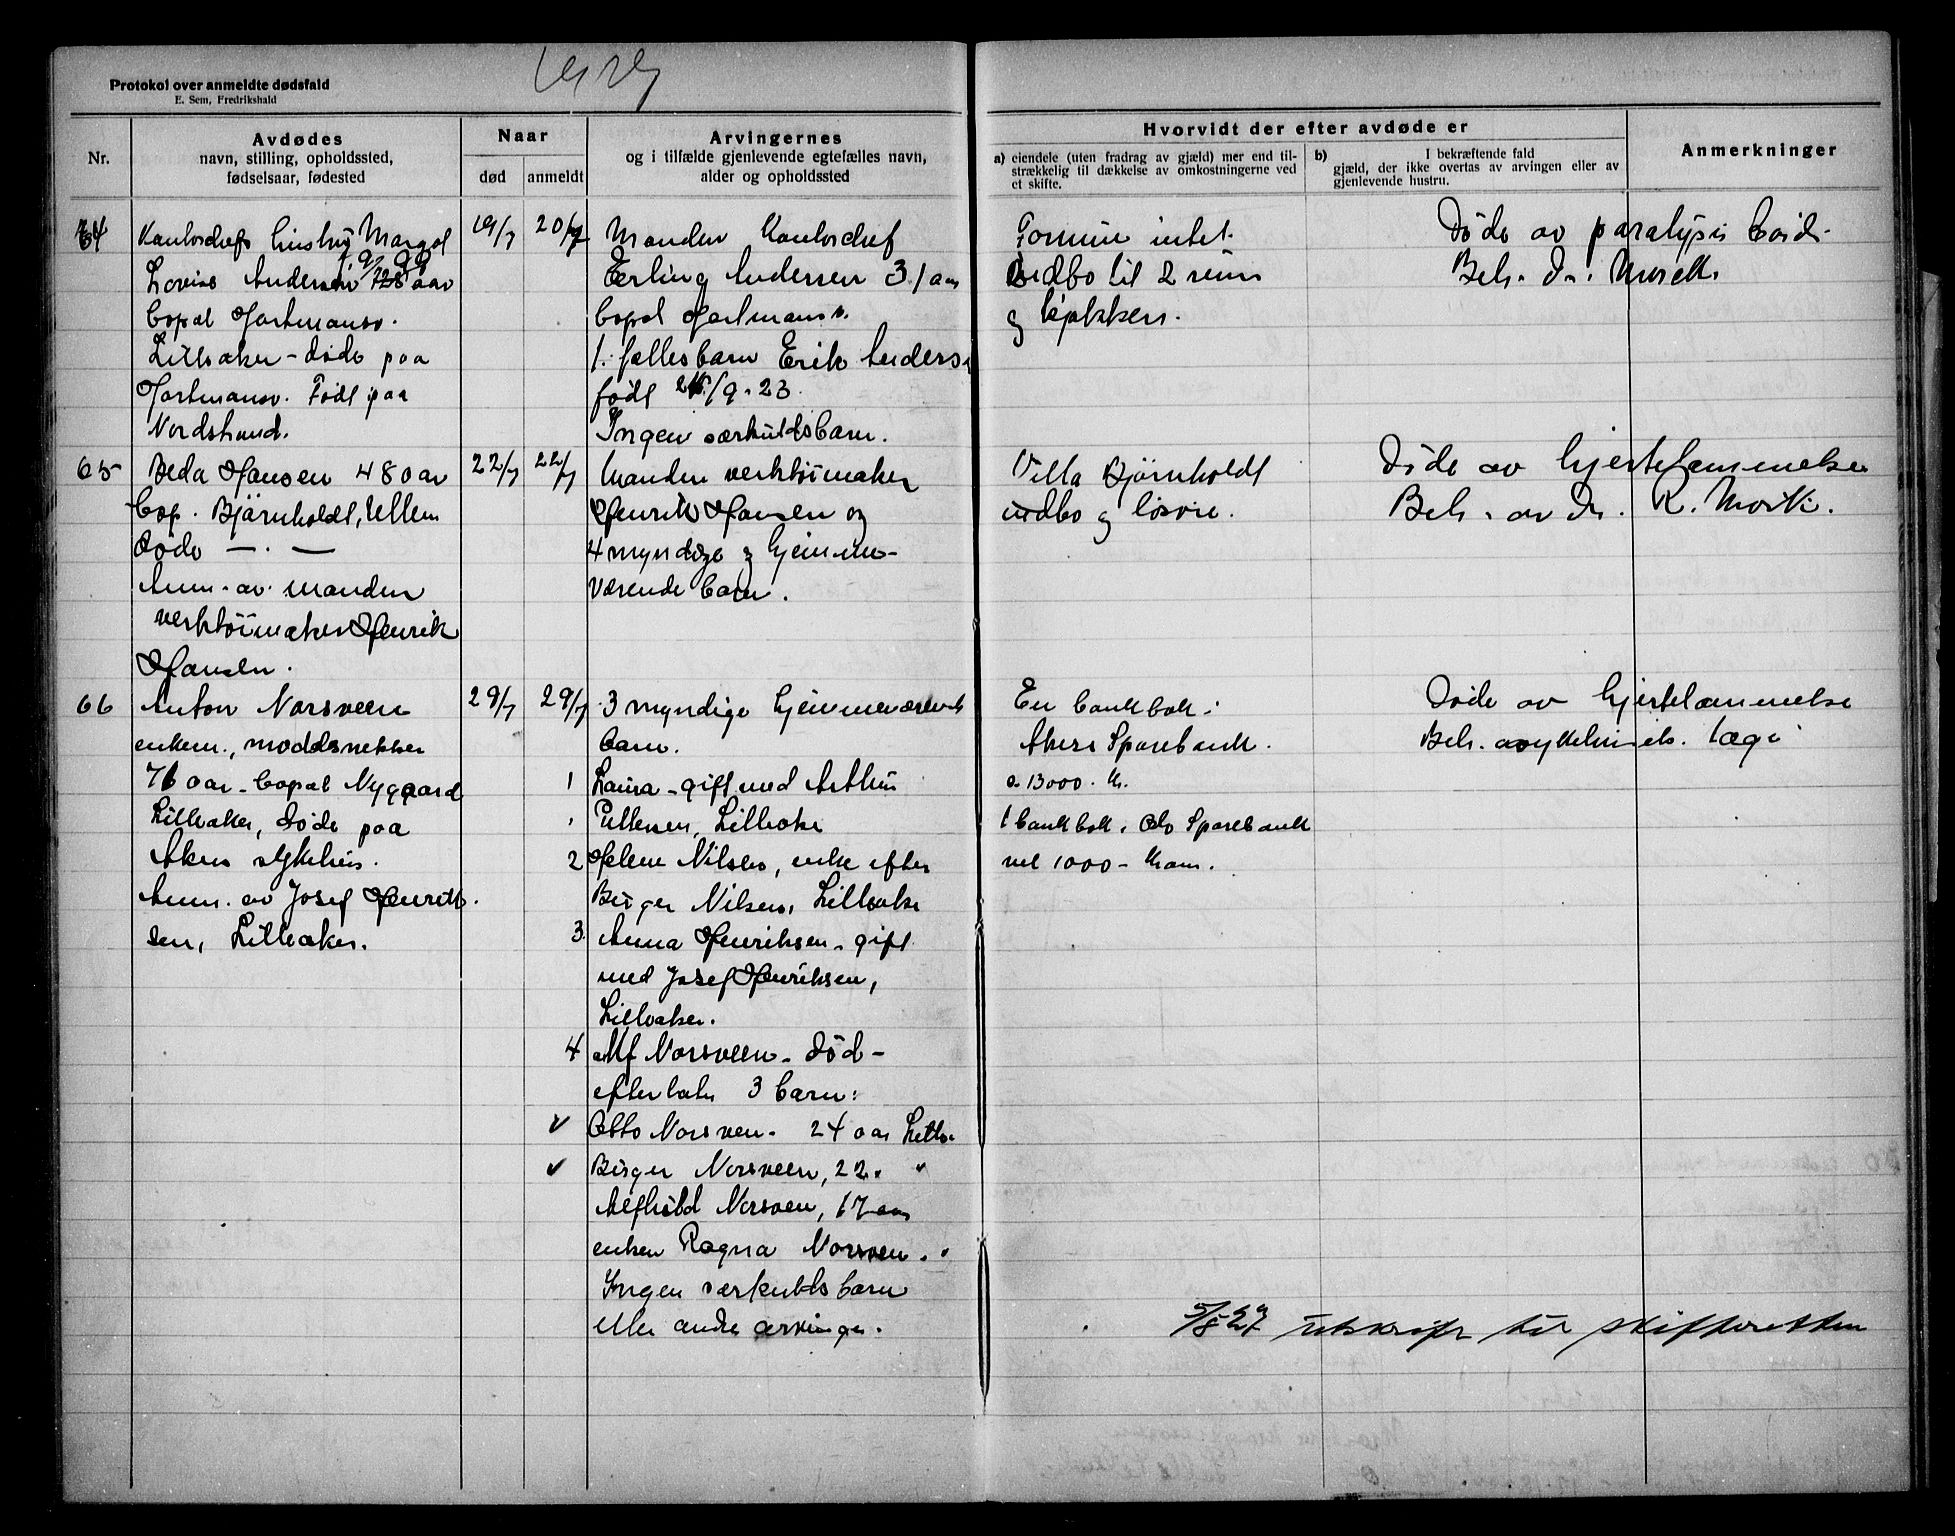 1927
Protokol over anmeldte dødsfald
E. Sem, Fredrikshald
Nr.
Avdødes
navn, stilling, opholdssted,
fødselsaar, fødested
Naar
død
anmeldt
Arvingernes
og i tilfælde gjenlevende egtefælles navn,
alder og opholdssted
Hvorvidt der efter avdøde er
a) eiendele (uten fradrag av gjæld) mer end til-
strækkelig til dækkelse av omkostningerne ved
et skifte.
b) I bekræftende fald
gjæld, der ikke overtas av arvingen eller av
gjenlevende hustru.
Anmerkninger
64
Kontorchefs hustru Margot
Lovise Andersen 28 aar
bopæl Hartmansv.
Lilleaker - døde paa
Hartmansv. Født paa
Nordstrand.
19/7
20/7
Manden Kontorchef
Erling Andersen 31 aar
bopæl Hartmansv.
1. fællesbarn Erik Anderse
født /9-23.
Ingen særkuldsbarn.
Formue intet.
Indbo til 2 rum
og kjøkken.
Døde av paralysis Cordis.
Beh. dr.
65
Beda Hansen 48 aar
bop. Bjørnholdt, Ullern
døde — . —
Anm. av manden
verktøimaker Henrik
Hansen.
22/7
22/7
Manden verktøimaker
Henrik Hansen og
4 myndige og hjemme-
værende barn.
Villa Bjørnholdt
indbo og løsøre.
Døde av hjertelammelse
Beh. av dr. R. Mork.
66
Anton Norsveen
enkem., møbelsnekker
76 aar - bopæl Nygaard
Lilleaker, døde paa
Akers sykehus.
Anm. av Josef Henrik-
sen, Lilleaker.
29/7
29/7
3 myndige hjemmeværende
barn.
1 Laura - gift med Arthur
Lilleaker
2 Helene Nilsen, enke efter
Birger Nilsen, Lilleaker
3. Anna Henriksen - gift
med Josef Henriksen,
Lilleaker.
4 Alf Norsveen - død -
efterlater 3 barn:
✓ Otto Norsveen - 24 aar Lilleа.
✓ Birger Norsveen, 22 " "
Alfhild Norsveen, 17 aar
enken Ragna Norsveen. "
Ingen særkuldsbarn
eller andre arvinger.
En bankbok i
Akers Sparebank.
a. 13000. Kr.
1 bankbok i Oslo Sparebank
vel 1000 - Kroner.
Døde av hjertelammelse
Beh. av sykehusets læge
5/8 27 utskrift til skifteretten